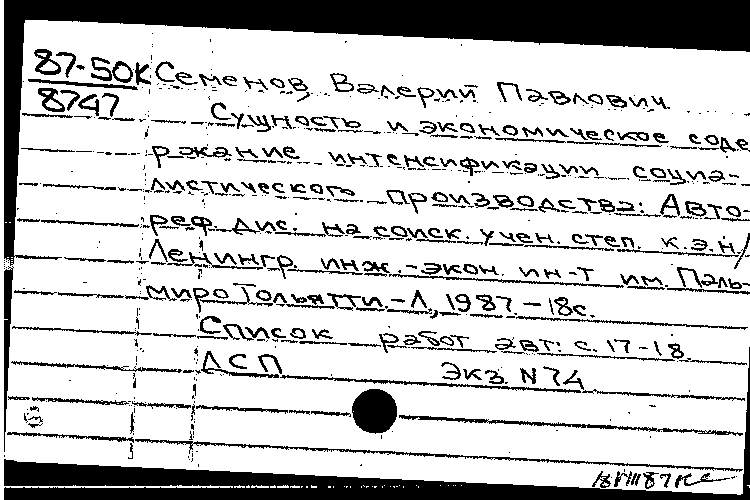 87-50К Семенов Валерий Павлович
8747
Сущность и экономическое соде
ржание интенсификации социа-
листического производства: Авто-
реф. дис. на соиск. учен. степ. к.э.н/
Ленингр. инж.-экон. ин-т им. Паль-
миро Тольятти.-Л., 1987-18с.
Список работ авт: с. 17-18.
ДСП Экз. N 74